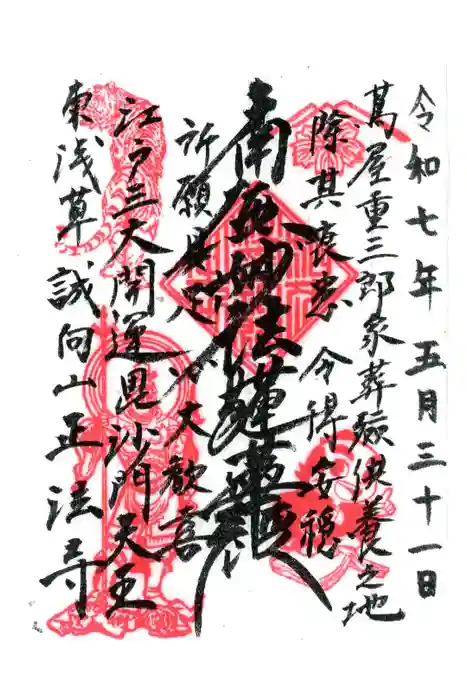 令和七年五月三十一日
蔦屋重三郎家葬殮供養之地
除其衰患 令得安穏
南無妙法蓮華経
所願具足 心大歓喜
江戸三大開運毘沙門天王
東浅草 誠向山正法寺